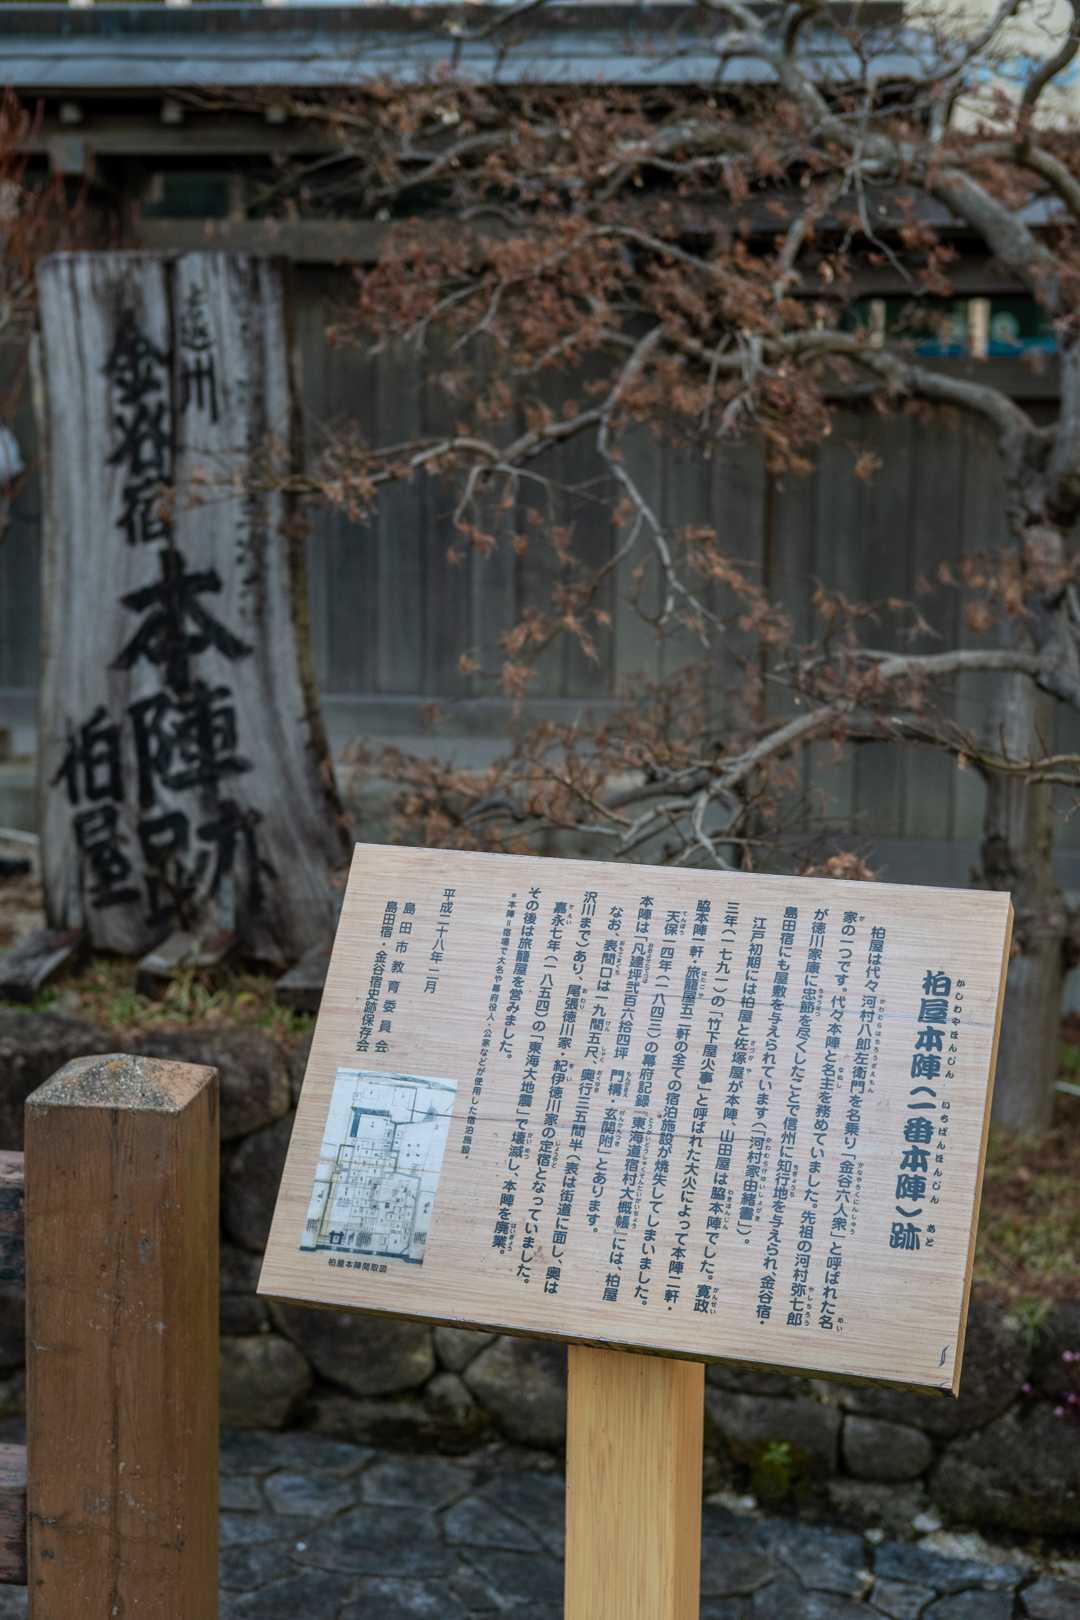 遠州
金谷宿
本陣跡
柏屋
柏屋本陣(一番本陣)跡
柏屋は代々河村八郎左衛門を名乗り「金谷六人衆」と呼ばれた名
家の一つです。代々本陣と名主を務めていました。先祖の河村弥七郎
が徳川家康に忠節を尽くしたことで信州に知行地を与えられ、金谷宿・
島田宿にも屋敷を与えられています(「河村家由緒書」)。
江戸初期には柏屋と佐塚屋が本陣、山田屋は脇本陣でした。寛政
三年(一七九一)の「竹下屋火事」と呼ばれた大火によって本陣二軒・
脇本陣一軒・旅籠屋五二軒の全ての宿泊施設が焼失してしまいました。
天保一四年(一八四三)の幕府記録「東海道宿村大概帳」には、柏屋
本陣は「凡建坪弐百六拾四坪 門構・玄関附」とあります。
なお、表間口は一九間五尺、奥行三五間半(表は街道に面し、奥は
沢川まで)あり、尾張徳川家・紀伊徳川家の定宿となっていました。
嘉永七年(一八五四)の「東海大地震」で壊滅し、本陣を廃業。
その後は旅籠屋を営みました。
*本陣=宿場で大名や幕府役人・公家などが使用した宿泊施設。
平成二十八年二月
島田市教育委員会
島田宿・金谷宿史跡保存会
柏屋本陣間取図